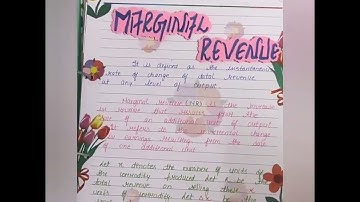 MARGINAL
REVENUE
It is defined as the instantaneous
rate of change of total revenue
at any level of output.
Marginal revenue (MR) is the increase
in revenue that results from the
of an additional unit of output
It refers to the incremental change
in earnings resulting from the sale
of one additional unit.
Let x denotes the numbers of units of
the commodity produced. Let R be the
total revenue on selling these x
units of commodity. Let Δx be the